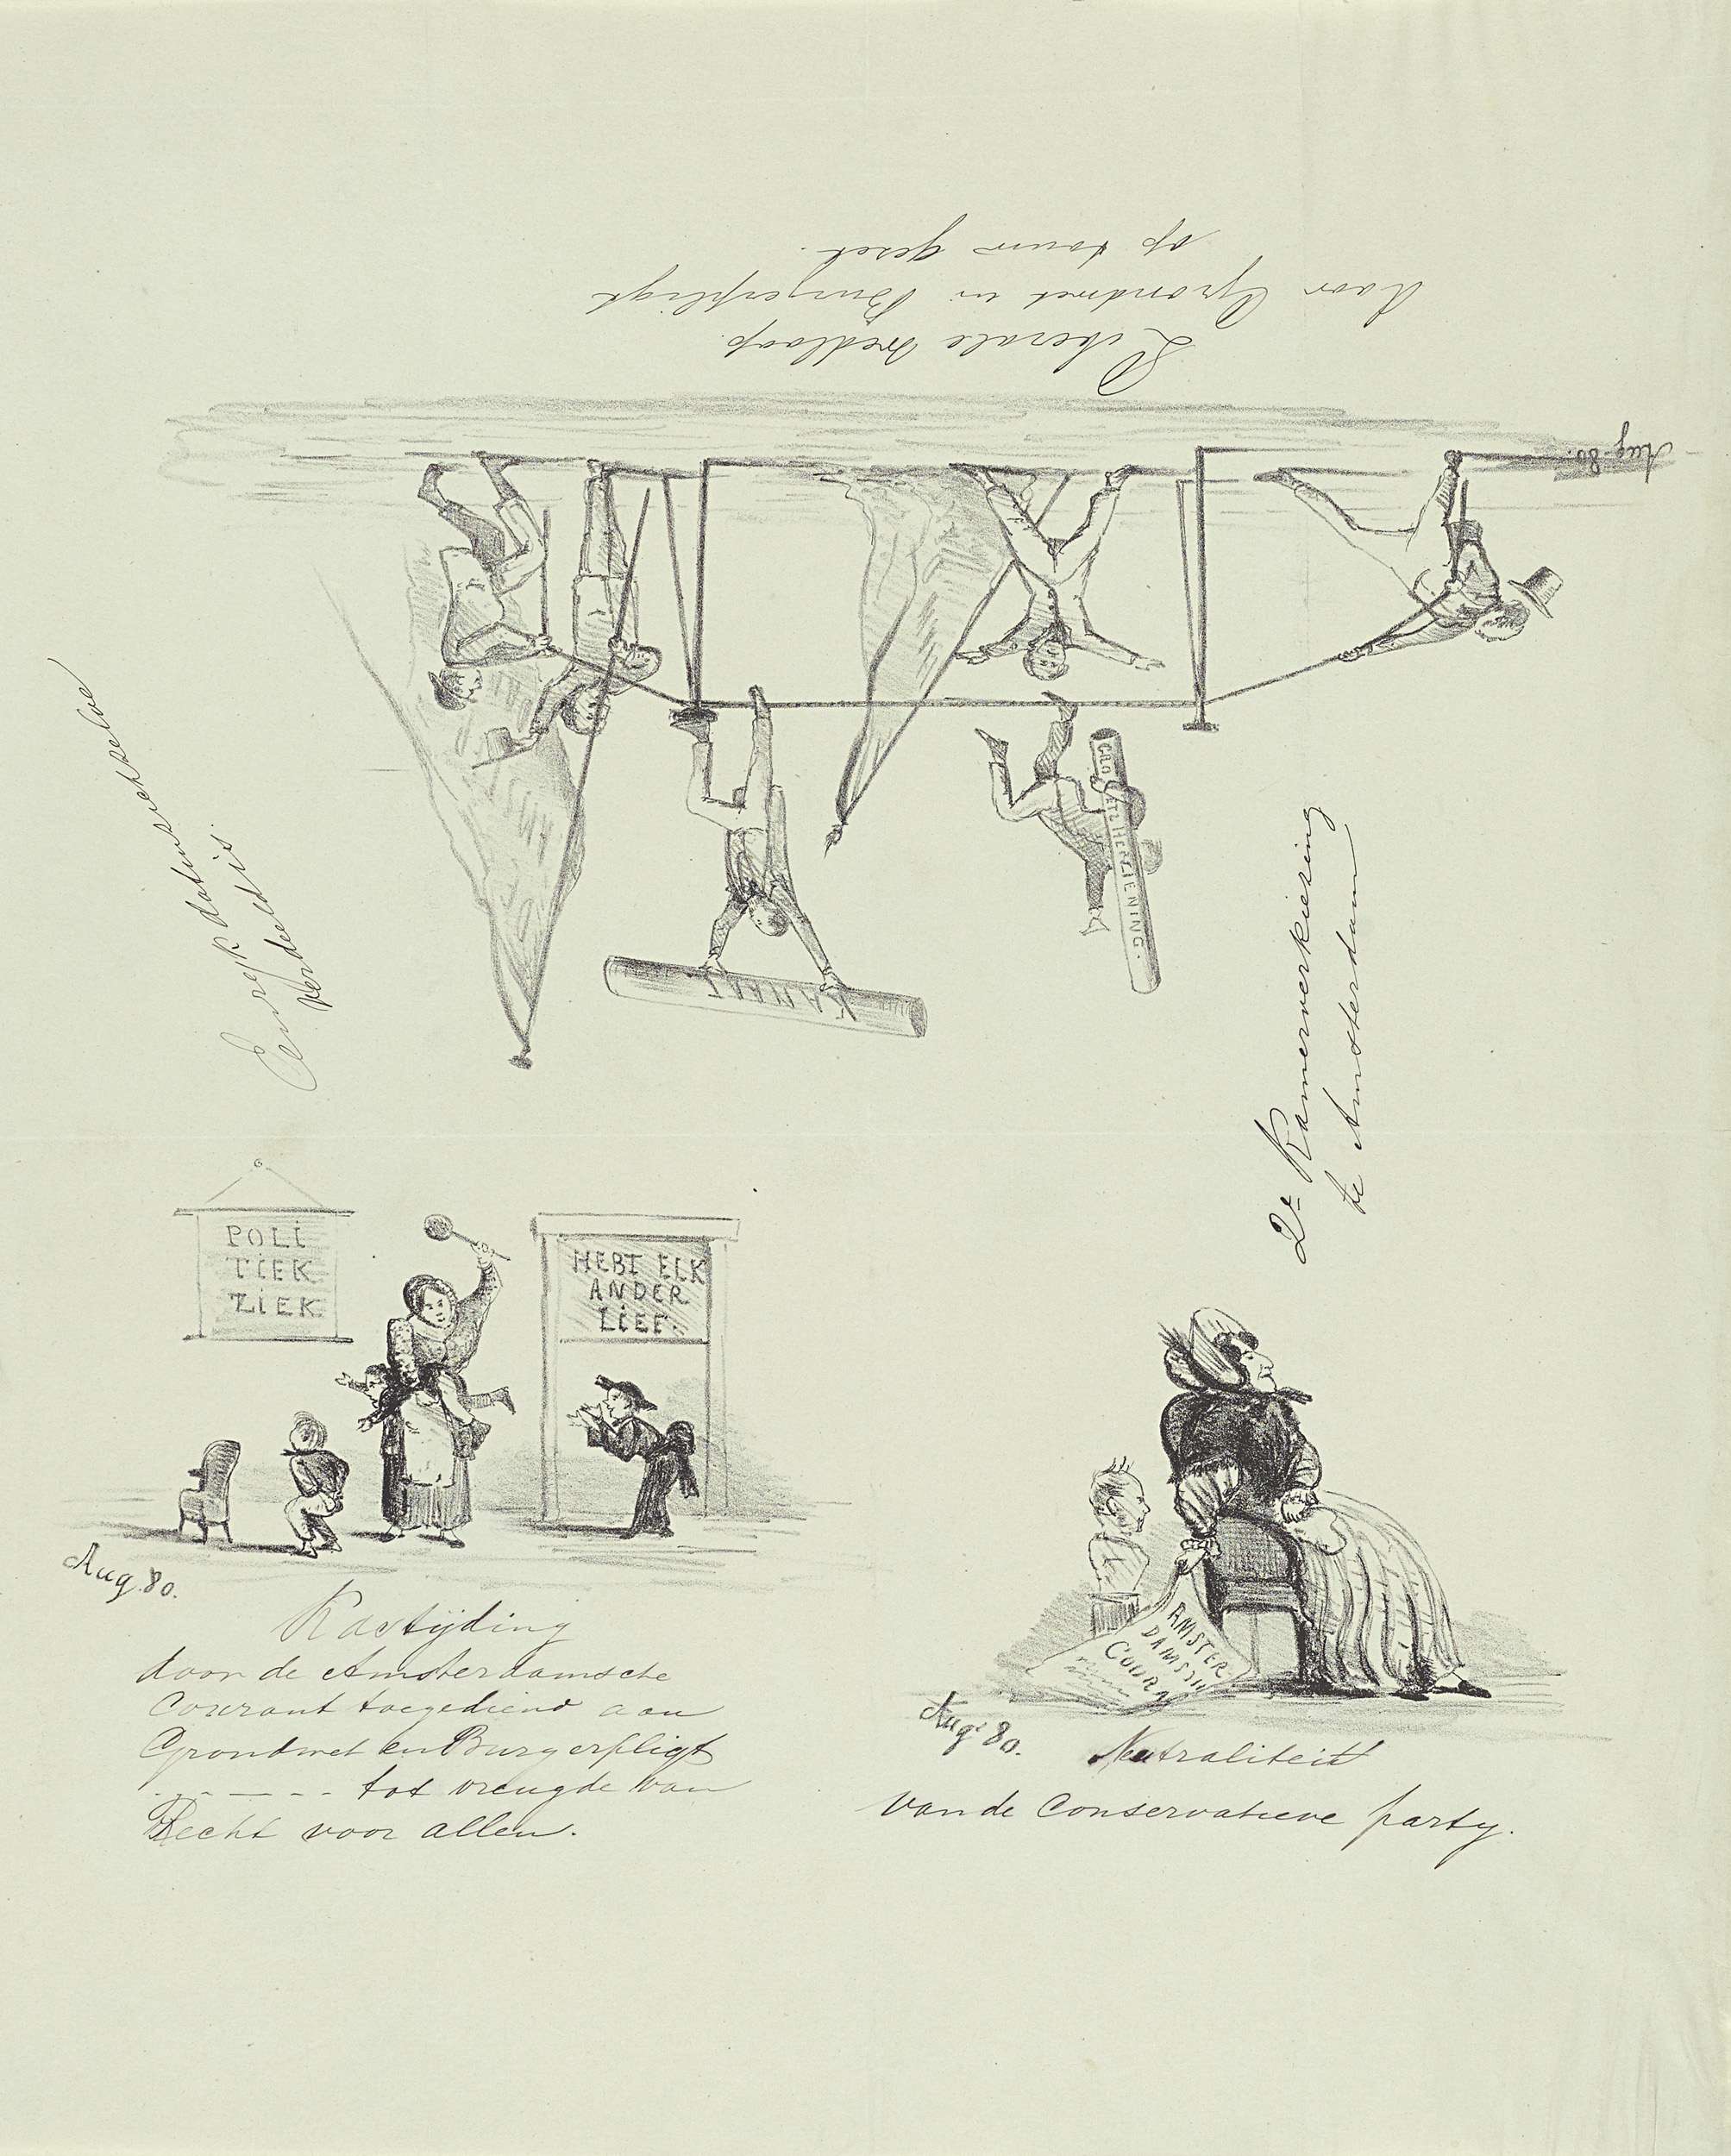 Liberale wedloop.
door Grondwet en Burgerpligt
op touw gezet.
Aug. 80.
KANAAL
GRONDWETSHERZIENING.
Een
verdeeld is.
2e Kamerverkiezing
te Amsterdam
POLI
TIEK
ZIEK
HEBT ELK
ANDER
LIEF.
Aug. 80.
Kastijding
door de Amsterdamsche
Courant toegediend aan
Grondwet en Burgerpligt
. - - - - - - tot vreugde van
Recht voor allen.
AMSTER
DAMSCH
COURA
Aug. 80.
Neutraliteit
van de Conservatieve party.